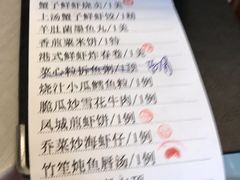 蟹子鲜虾烧卖/1笼
上汤蟹子鲜虾饺/1
羊肚菌墨鱼丸/1
香煎粟米饼/1特
港式鲜虾炸春卷/1
菜心粒拆鱼粥/1
烧汁小瓜鳕鱼粒/1例
脆瓜炒雪花牛肉/1例
凤城煎虾饼/1例
芥菜炒海虾仔/1例
竹笙炖鱼唇汤/1例